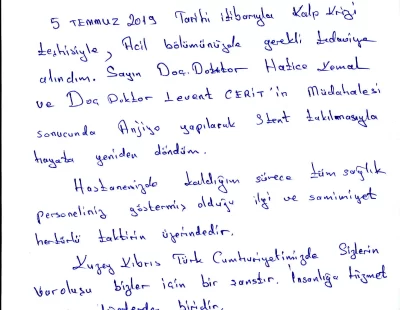 5 TEMMUZ 2019 Tarihi itibarıyla Kalp Krizi
teşhisiyle, Acil bölümünüzde gerekli tedaviye
alındım. Sayın Doç. Doktor Hatice Kemal
ve Doç Doktor Levent CERİT'in Müdahalesi
sonucunda Anjiyo yapılarak Stent takılmasıyla
hayata yeniden döndüm.
Hastanenizde kaldığım sürece tüm sağlık
personeliniz göstermiş olduğu ilgi ve samimiyet
hertürlü taktirin üzerindedir.
Kuzey Kıbrıs Türk Cumhuriyetimizde Sizlerin
varoluşu bizler için bir şanstır. İnsanlığa hizmet
biridir.